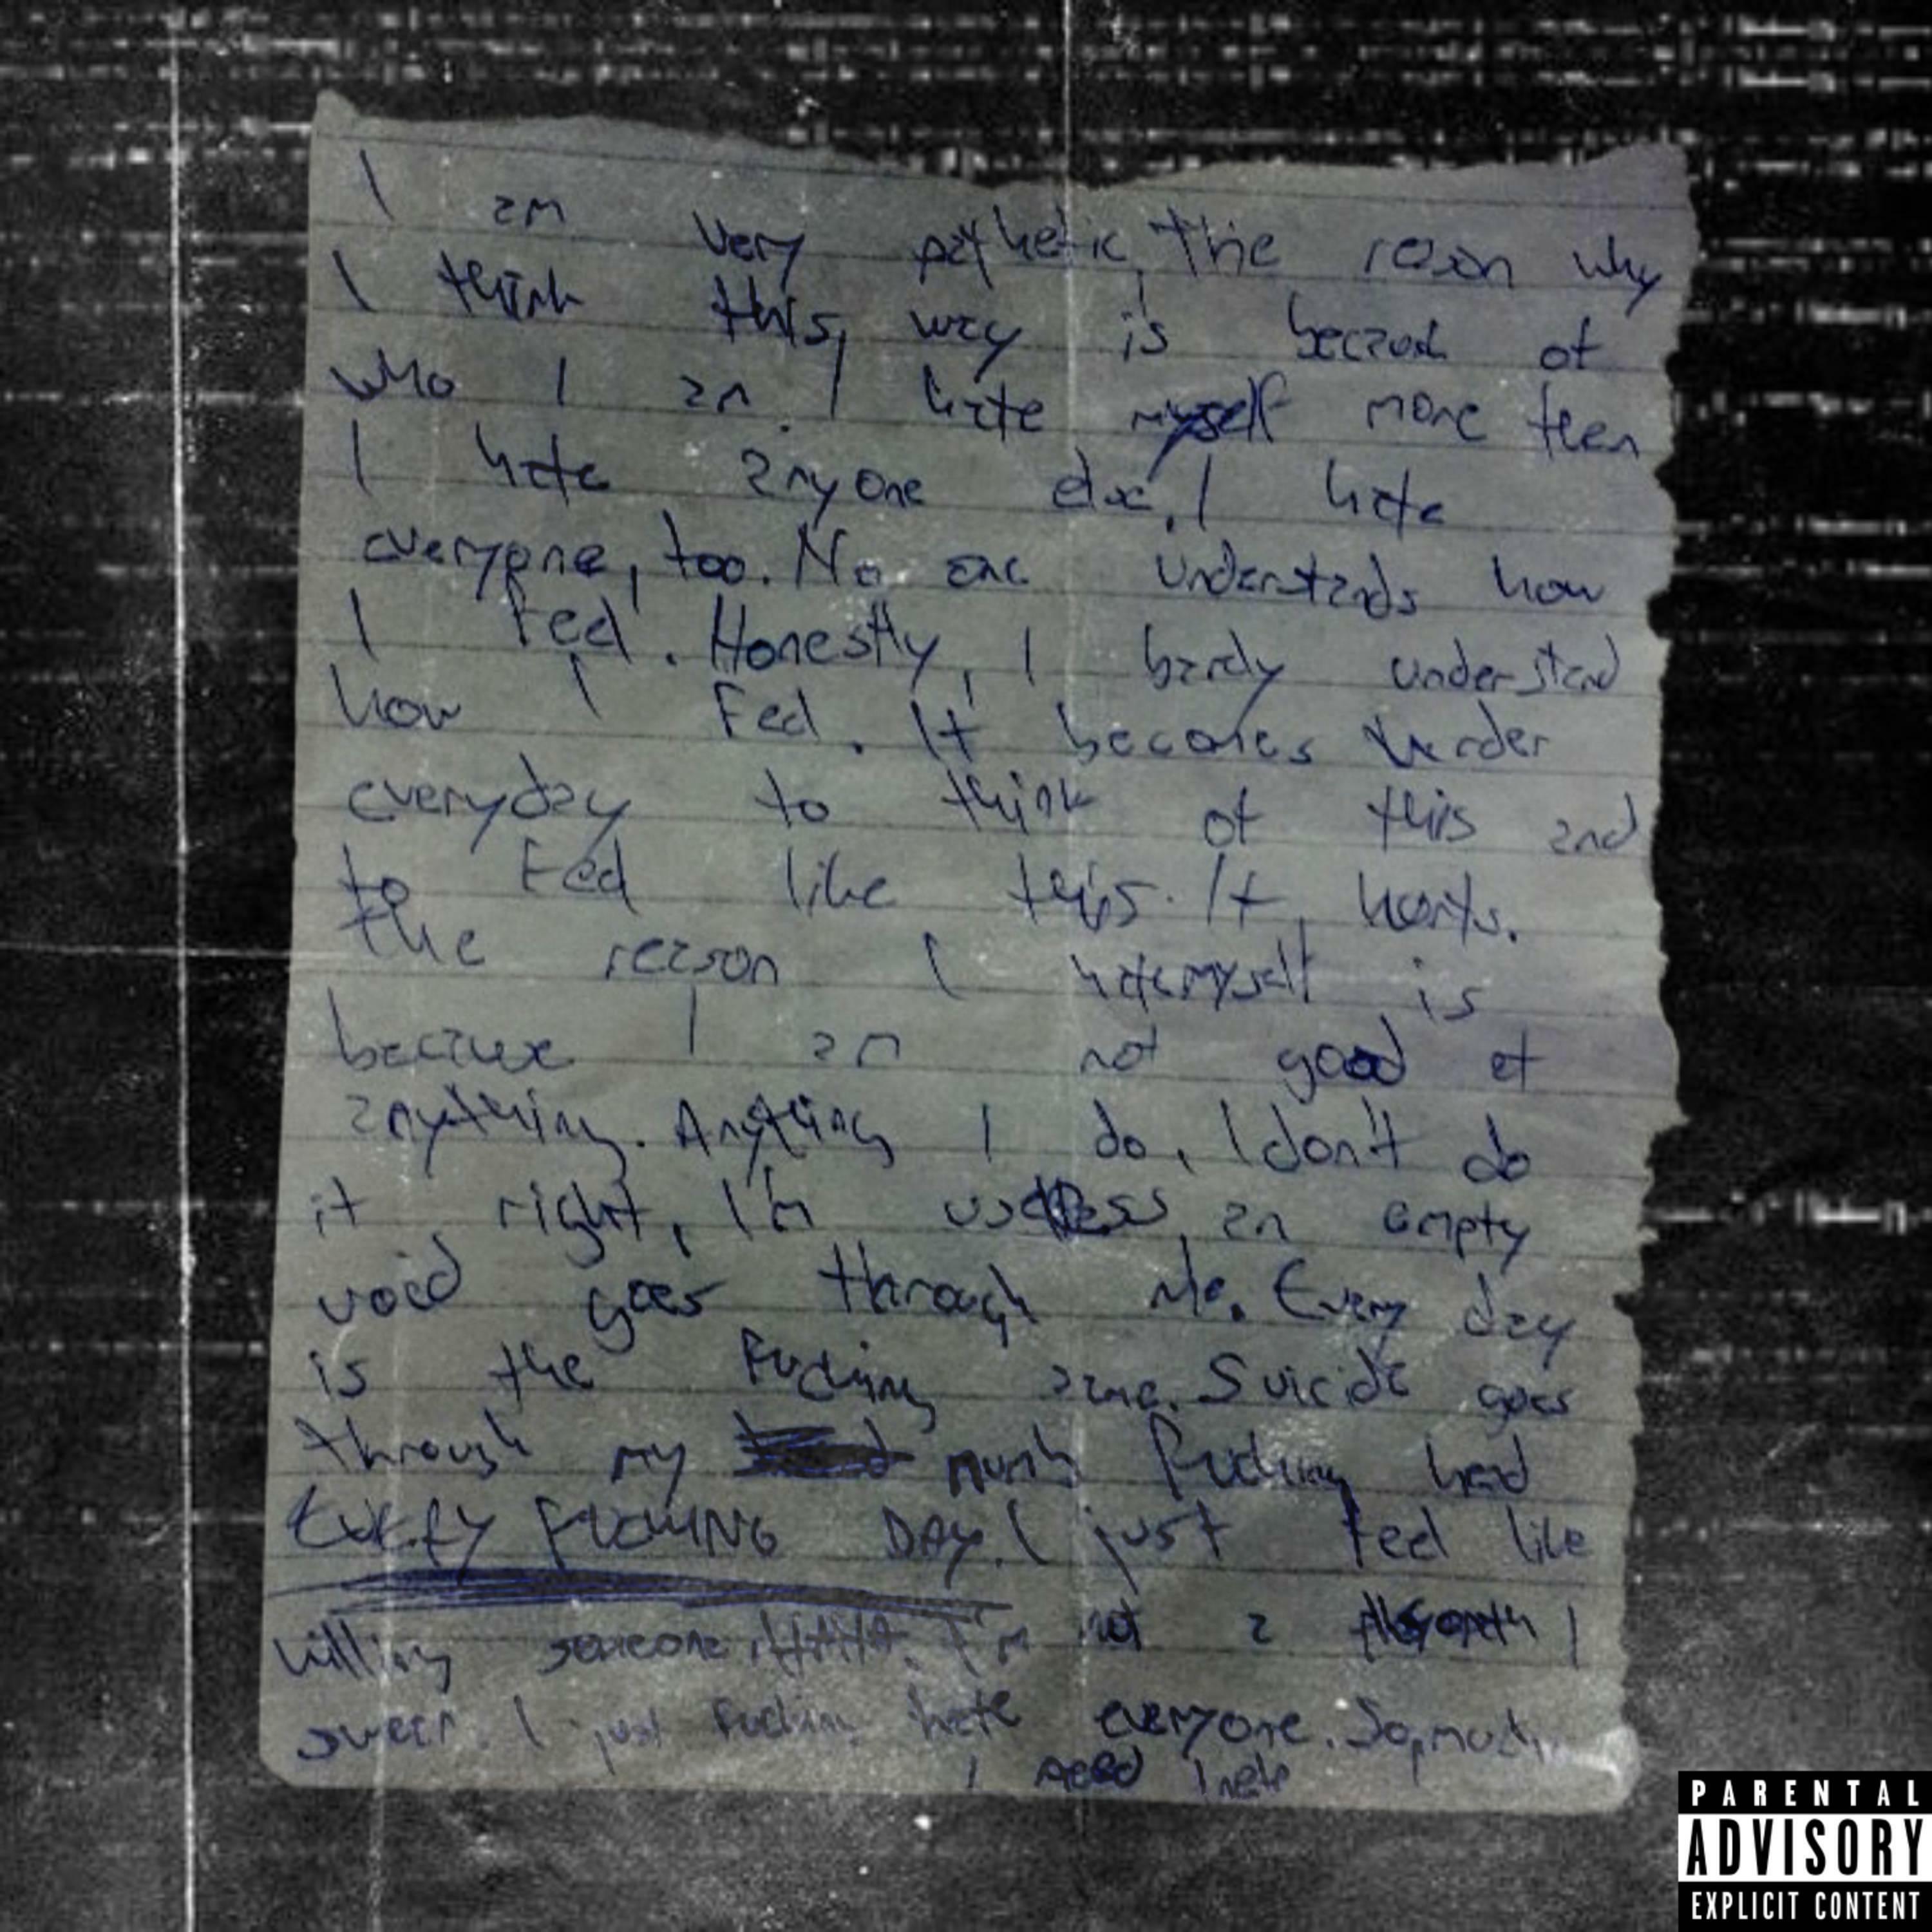 I am very pathetic, The reason why
I think this way is because of
who I am. I hate myself more then
I hate anyone else, I hate
everyone, too. No one understands how
I feel. Honestly, I barely understand
how I feel. It becomes harder
everyday to think of this and
to feel like this. It hurts.
the reason I hate myself is
because I am not good at
anything. Anything I do, I don't do
it right, I'm useless, an empty
void goes through Me. Every day
is the fucking same. Suicide goes
through my numb fucking head
EVERY FUCKING DAY. I just feel like
killing someone, HAHA. I'm not a I
swear. I just fucking hate everyone. So, much
I need help
PARENTAL
ADVISORY
EXPLICIT CONTENT